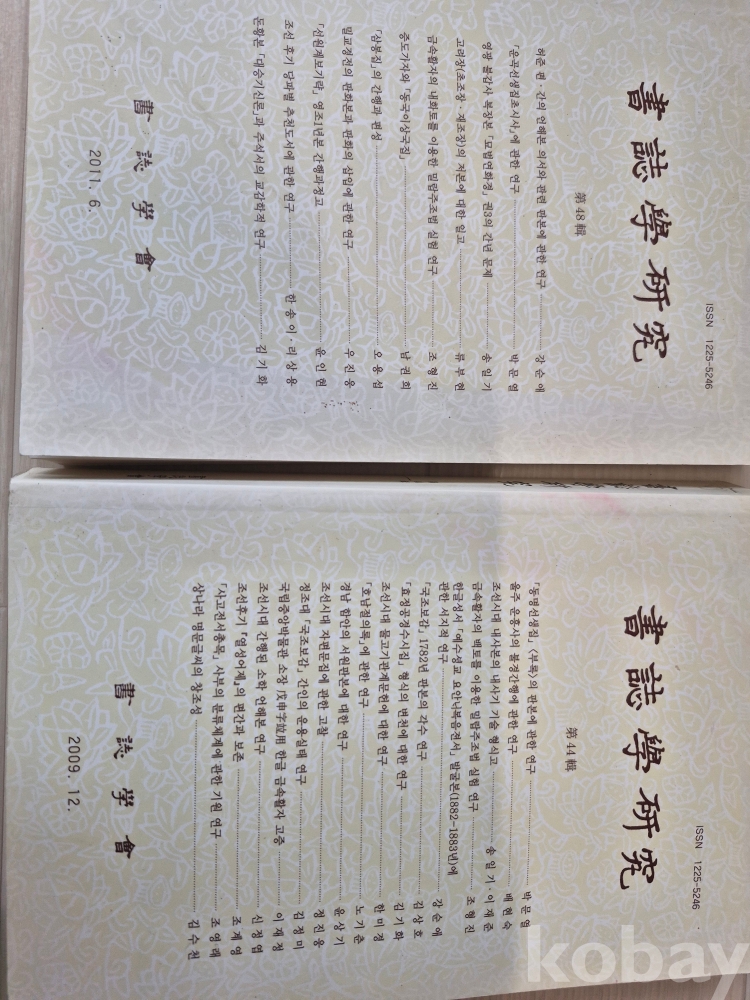 ISSN 1225-5246
書誌學研究
第48輯
허준 편·간의 언해본 의서와 관련 판본에 관한 연구 강순애
「운곡선생집초시사」에 관한 연구 박문열
영광 불갑사 복장본 「묘법연화경」 권3의 간년 문제 송일기
고려장(초조장·재조장)의 저본에 대한 일고 류부현
금속활자의 내화토를 이용한 밀랍주조법 실험 연구 조형진
증도가자와 「동국이상국집」 남권희
「삼봉집」의 간행과 편성 오용섭
밀교경전의 판화본과 판화의 삽입에 관한 연구 우진웅
「선원계보기략」 영조1년본 간행과정고 윤인현
조선 후기 당파별 추천도서에 관한 연구 한송이·리상용
돈황본 「대승기신론」과 주석서의 교감학적 연구 김기화
書誌學會
2011. 6.
ISSN 1225-5246
書誌學研究
第44輯
「동명선생집」 〈부록〉의 판본에 관한 연구 박문열
울주 운흥사의 불경간행에 관한 연구 배현숙
조선시대 내사본의 내사기 기술 형식고 송일기·이재준
금속활자의 백토를 이용한 밀랍주조법 실험 연구 조형진
한글성서 「예수셩교 요안내복음젼서」 발굴본(1882-1883년)에
관한 서지적 연구 강순애
「국조보감」 1782년 판본의 각수 연구 김상호
「효정공경수시집」 형식의 변천에 대한 연구 김기화
조선시대 물고기관계문헌에 대한 연구 한미경
「호남절의록」에 관한 연구 노기춘
경남 함안의 서원판본에 대한 연구 윤상기
조선시대 자편문집에 관한 고찰 정진웅
정조대 「국조보감」 간인의 운용실태 연구 김정미
국립중앙박물관 소장 戊申字竝用 한글 금속활자 고증 이재정
조선시대 간행된 소학 언해본 연구 신정엽
조선후기 「열성어제」의 편간과 보존 조계영
「사고전서총목」 사부의 분류체계에 관한 기원 연구 조영래
상나라 명문글씨의 창조성 김수천
書誌學會
2009. 12.
kobay